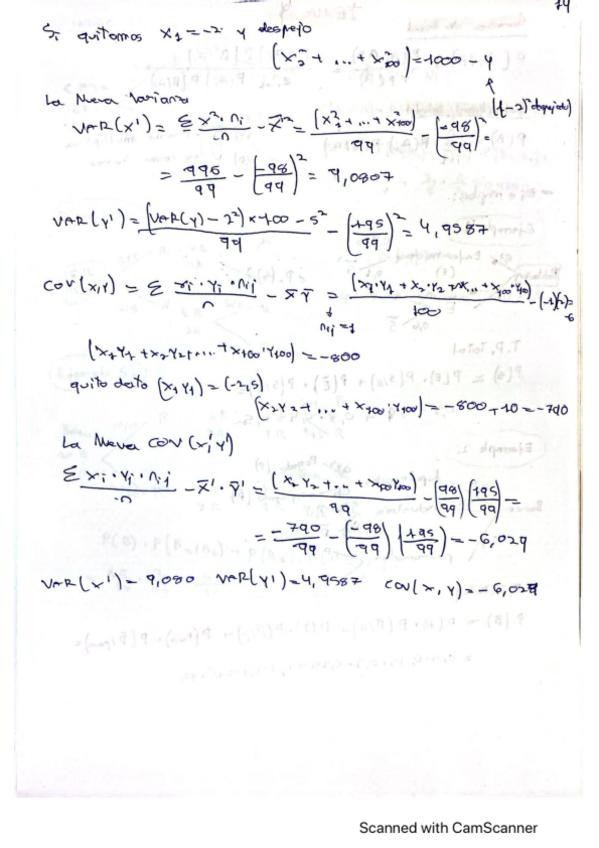 14
Si quitamos x1 = -2 y despejo
(x2² + ... + x100²) = 1000 - 4
La Nueva Varianza
(-2)² despejado)
VAR(x') = Σ x²·ni / n - x̄'² = (x2² + ... + x100²) / 99 - (-98/99)² =
= 996/99 - (-98/99)² = 9,0807
VAR(y') = (VAR(y) - 2²) × 100 - 5² / 99 - (195/99)² = 4,9587
COV(x,y) = Σ xi·yi·nij / n - x̄ ȳ = (x1·y1 + x2·y2 + ... + x100·y100) / 100 - (-1)(2) = -6
nij = 1
(x1y1 + x2y2 + ... + x100·y100) = -800
quito dato (x1y1) = (-2,5)
(x2y2 + ... + x100·y100) = -800 + 10 = -790
La Nueva COV(x',y')
Σ xi·yi·nij / n - x̄'·ȳ' = (x2y2 + ... + x100y100) / 99 - (98/99)(195/99) =
= -790/99 - (-98/99)(195/99) = -6,029
VAR(x') = 9,080 VAR(y') = 4,9587 COV(x,y) = -6,029
Scanned with CamScanner